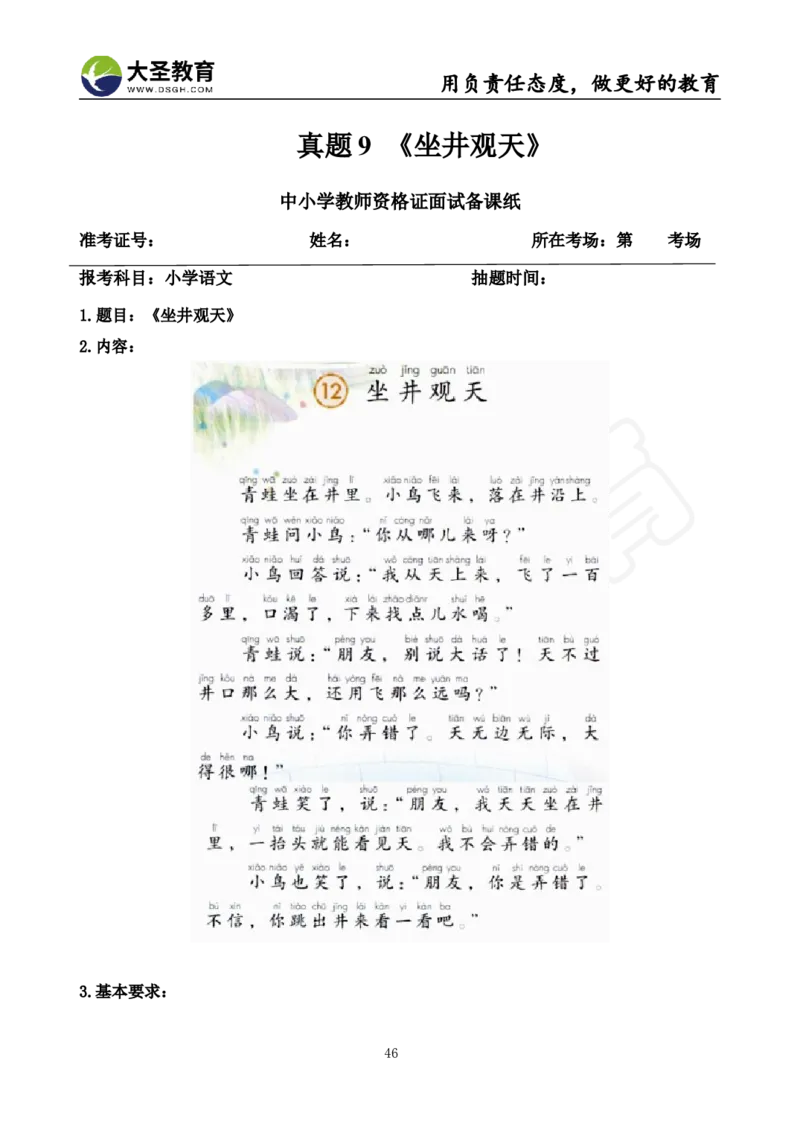 大圣教育
WWW.DSGH.COM
用负责任态度，做更好的教育
真题 9 《坐井观天》
中小学教师资格证面试备课纸
准考证号： 姓名： 所在考场：第 考场
报考科目：小学语文 抽题时间：
1.题目：《坐井观天》
2.内容：
zuò jǐng guān tiān
12 坐井观天
qīng wā zuò zài jǐng lǐ xiǎo niǎo fēi lái luò zài jǐng yán shàng
青蛙坐在井里。小鸟飞来，落在井沿上。
qīng wā wèn xiǎo niǎo nǐ cóng nǎr lái ya
青蛙问小鸟：“你从哪儿来呀？”
xiǎo niǎo huí dá shuō wǒ cóng tiān shàng lái fēi le yì bǎi
小鸟回答说：“我从天上来，飞了一百
duō lǐ kǒu kě le xià lái zhǎo diǎnr shuǐ hē
多里，口渴了，下来找点儿水喝。”
qīng wā shuō péng you bié shuō dà huà le tiān bú guò
青蛙说：“朋友，别说大话了！天不过
jǐng kǒu nà me dà hái yòng fēi nà me yuǎn ma
井口那么大，还用飞那么远吗？”
xiǎo niǎo shuō nǐ nòng cuò le tiān wú biān wú jì dà
小鸟说：“你弄错了。天无边无际，大
de hěn na
得很哪！”
qīng wā xiào le shuō péng you wǒ tiān tiān zuò zài jǐng
青蛙笑了，说：“朋友，我天天坐在井
lǐ yì tái tóu jiù néng kàn jiàn tiān wǒ bú huì nòng cuò de
里，一抬头就能看见天。我不会弄错的。”
xiǎo niǎo yě xiào le shuō péng you nǐ shì nòng cuò le
小鸟也笑了，说：“朋友，你是弄错了。
bú xìn nǐ tiào chū jǐng lái kàn yi kàn ba
不信，你跳出井来看一看吧。”
3.基本要求：
46